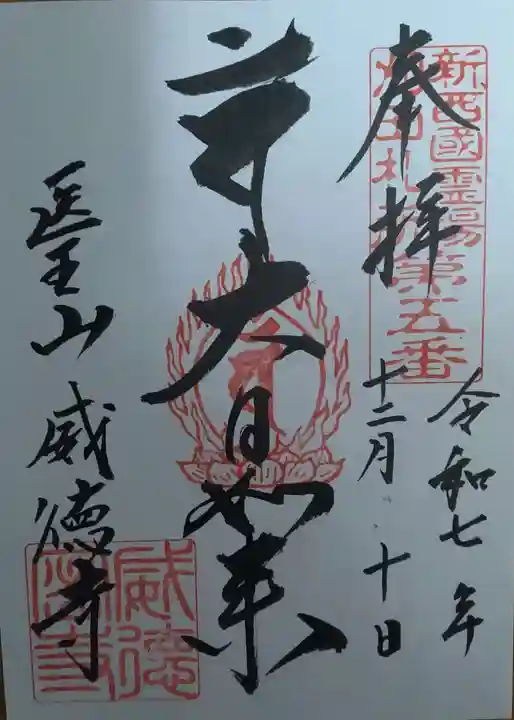 奉拝
新西國霊場
第五番
令和七年
十二月二十日
大日如来
医王山威徳寺
威德